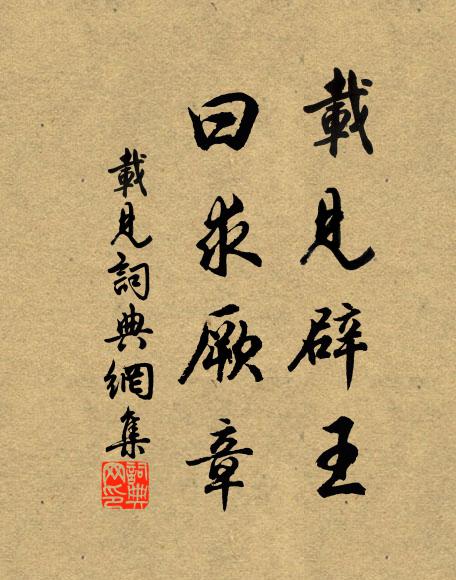 載見辟王
曰求厥章
載見詞典網集
詞典網印